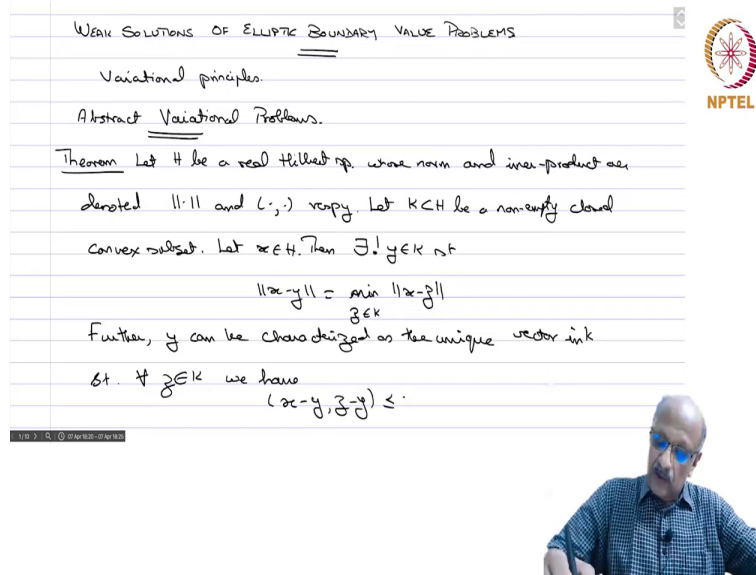 WEAK SOLUTIONS OF ELLIPTIC BOUNDARY VALUE PROBLEMS
Variational principles.
Abstract Variational Problems.
Theorem Let H be a real Hilbert sp. whose norm and inner-product are
denoted ||·|| and (·,·) respy. Let K⊂H be a non-empty closed
convex subset. Let x∈H. Then ∃! y∈K st
||x-y|| = min ||x-z||
z∈K
Further, y can be characterized as the unique vector in K
st. ∀ z∈K we have
(x-y, z-y) ≤
NPTEL
1/10 07 Apr 18:20 - 07 Apr 18:25